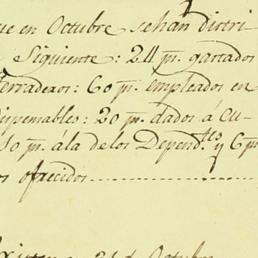 ue en Octubre sehán distri
Siguiente: 24 p.s gastados
erraderos: 60 p.s empleados en
ispensables: 20 p.s dados á Cu-
10 p.s ála delos Depend.tes y 6 p.s
os ofrecidos
Octubre